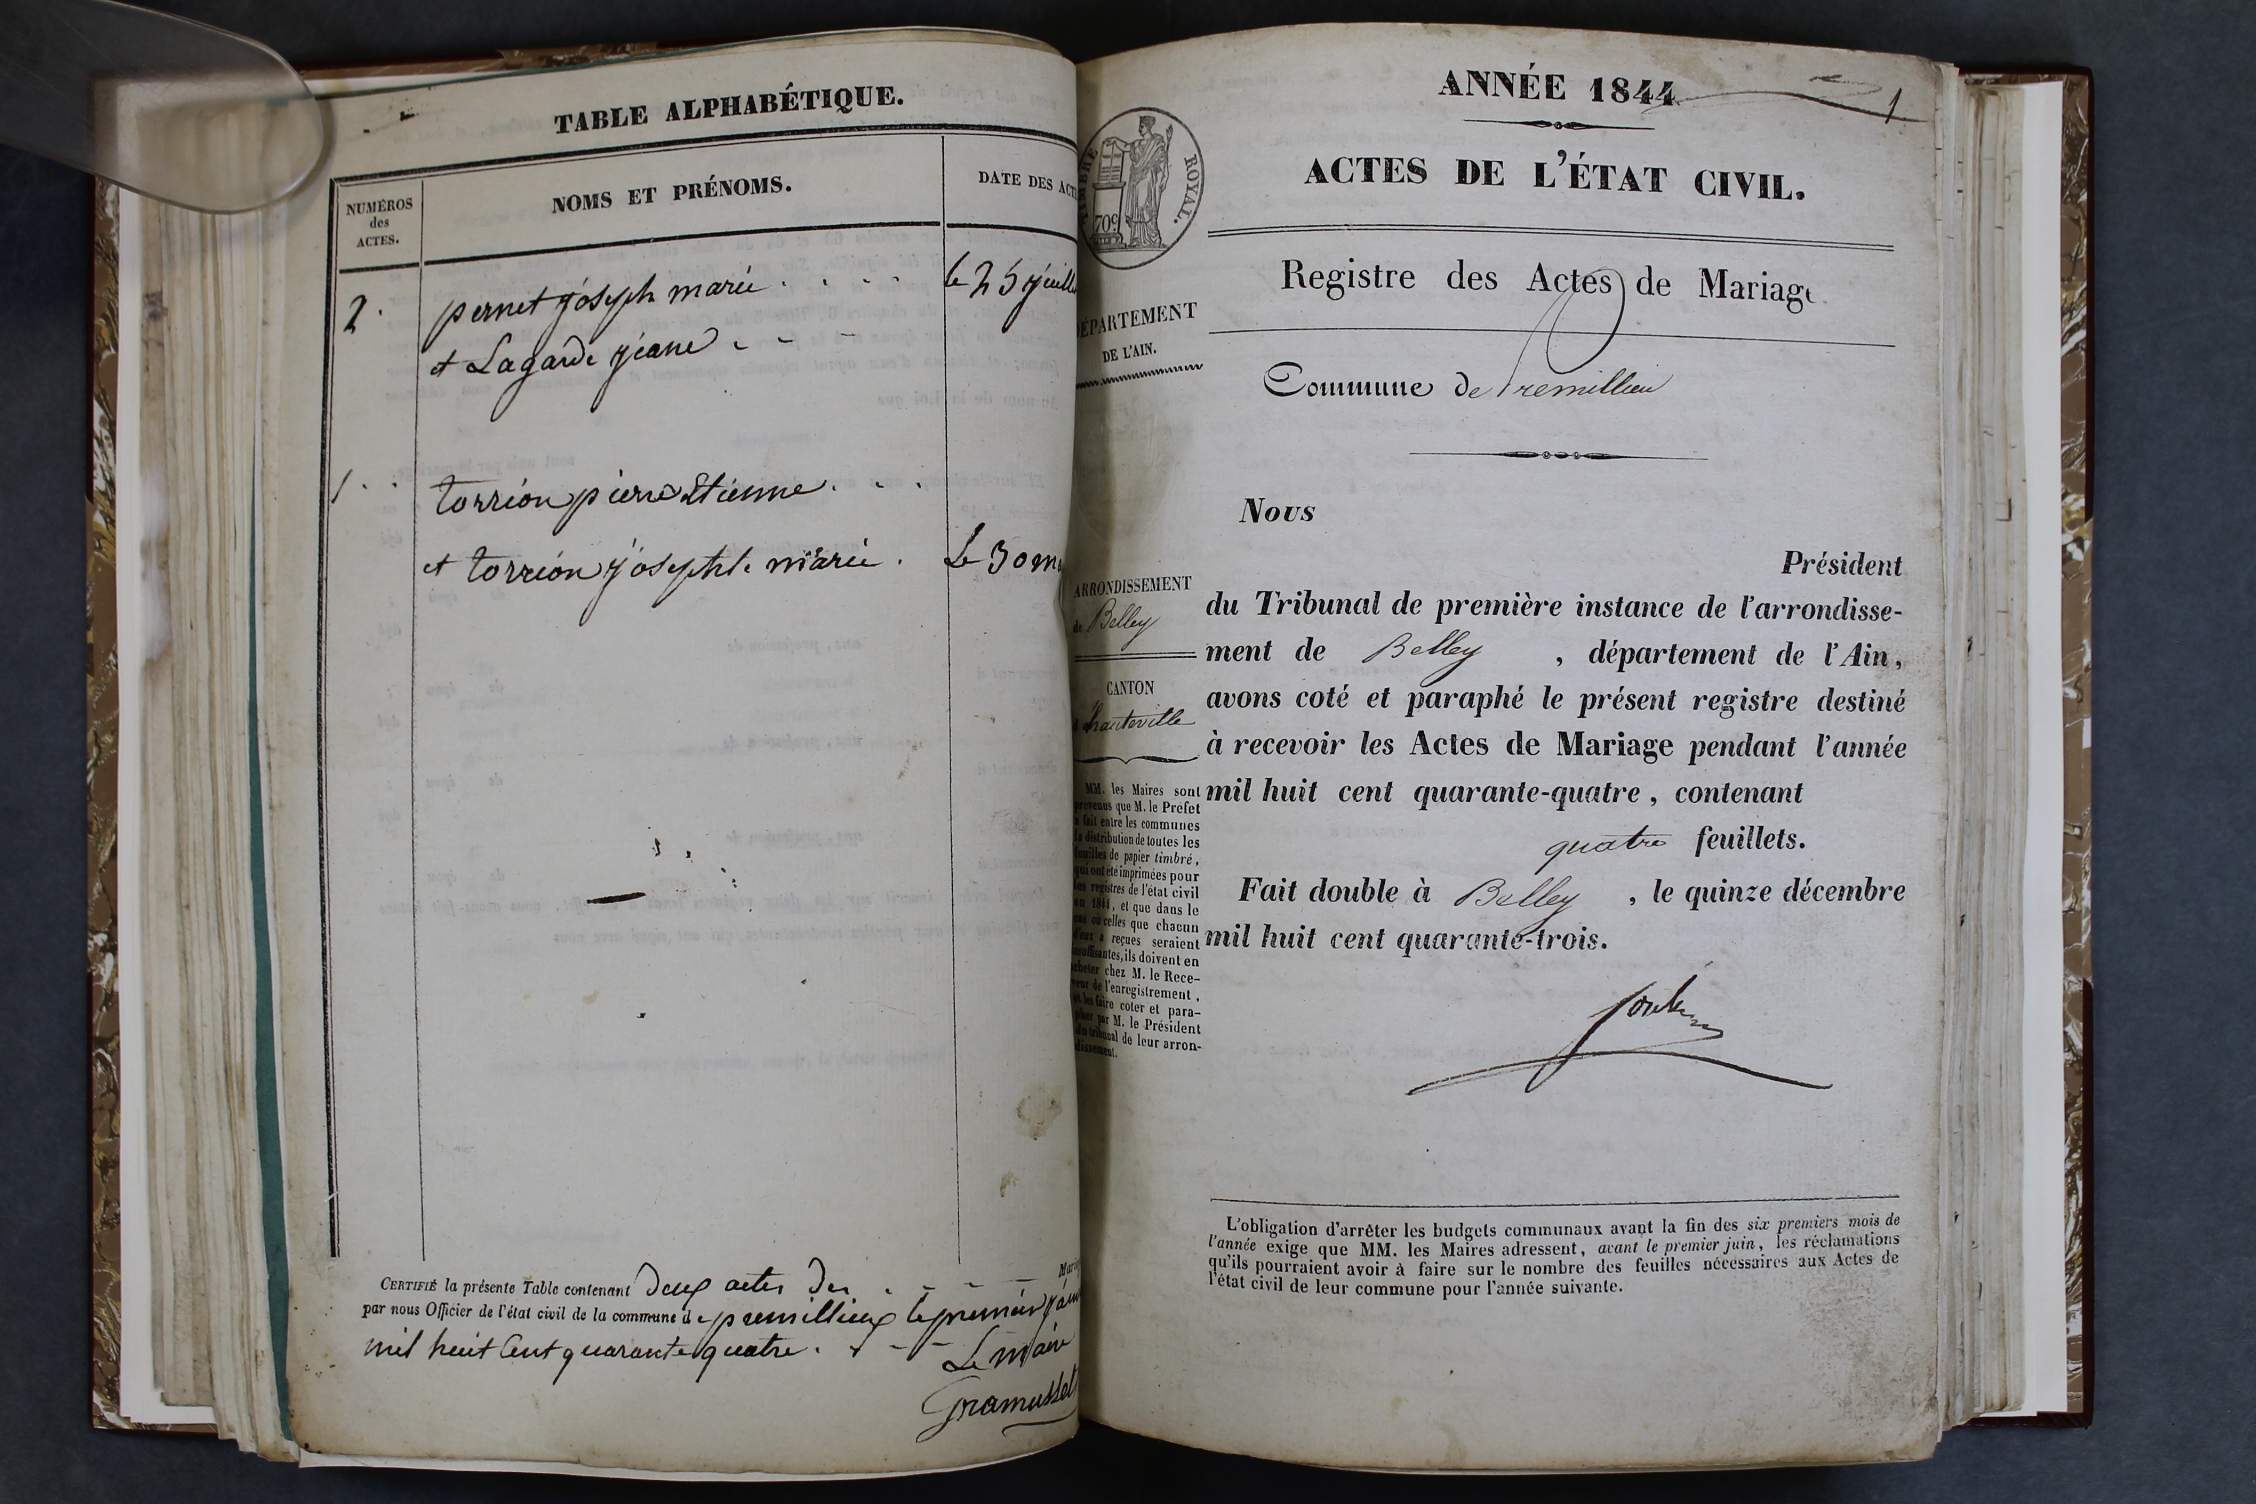 TABLE ALPHABÉTIQUE.
NUMÉROS
des
ACTES.
NOMS ET PRÉNOMS.
DATE DES ACT
2. pernet joseph marie . . . . le 25 juill
et Lagarde jeane . . .
1. . torrion pierre Etienne . . .
et torrion josephte marie . Le 30 m
CERTIFIÉ la présente Table contenant deux actes de . - - - Maria
par nous Officier de l'état civil de la commune de premillieux le premier jan
mil huit Cent quarante quatre . - - -
Le maire
Gramusset
ANNÉE 1844
1
ACTES DE L'ÉTAT CIVIL.
TIMBRE ROYAL.
70c
Registre des Actes de Mariage
DÉPARTEMENT
DE L'AIN.
Commune de Premillieu
Nous
Président
du Tribunal de première instance de l'arrondisse-
ment de Belley , département de l'Ain,
avons coté et paraphé le présent registre destiné
à recevoir les Actes de Mariage pendant l'année
mil huit cent quarante-quatre, contenant
quatre feuillets.
Fait double à Belley , le quinze décembre
mil huit cent quarante-trois.
ARRONDISSEMENT
de Belley
CANTON
d'hauteville
MM. les Maires sont
prévenus que M. le Préfet
a fait entre les communes
la distribution de toutes les
feuilles de papier timbré,
qui ont été imprimées pour
les registres de l'état civil
en 1844, et que dans le
cas où celles que chacun
d'eux a reçues seraient
insuffisantes, ils doivent en
acheter chez M. le Rece-
veur de l'enregistrement,
et les faire coter et para-
pher par M. le Président
du tribunal de leur arron-
dissement.
L'obligation d'arrêter les budgets communaux avant la fin des six premiers mois de
l'année exige que MM. les Maires adressent, avant le premier juin, les réclamations
qu'ils pourraient avoir à faire sur le nombre des feuilles nécessaires aux Actes de
l'état civil de leur commune pour l'année suivante.